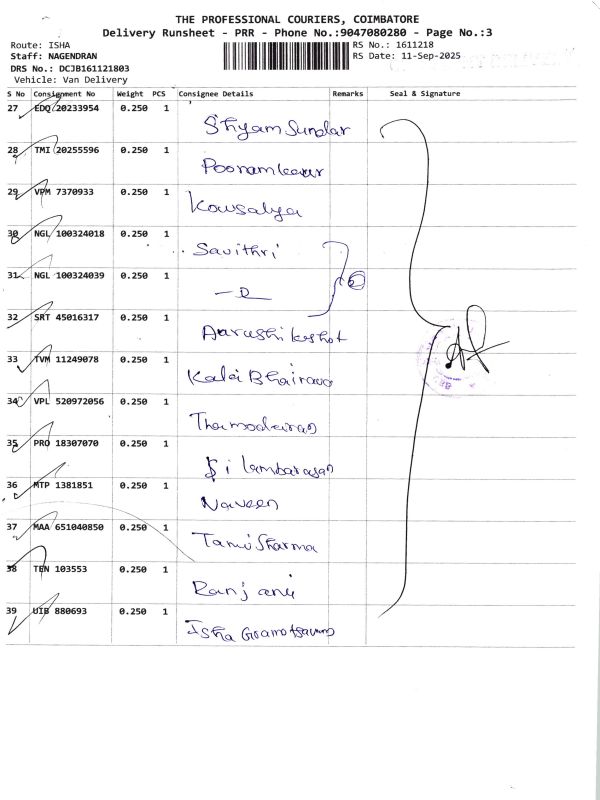 THE PROFESSIONAL COURIERS, COIMBATORE
Delivery Runsheet - PRR - Phone No.:9047080280 - Page No.:3
Route: ISHA RS No.: 1611218
Staff: NAGENDRAN RS Date: 11-Sep-2025
DRS No.: DCJB161121803
Vehicle: Van Delivery
S No Consignment No Weight PCS Consignee Details Remarks Seal & Signature
27 EDQ 20233954 0.250 1
Shyam Sundar
28 TMI 20255596 0.250 1
Poonam kaur
29 VPM 7370933 0.250 1
Kowsalya
30 NGL 100324018 0.250 1
Savithri
31 NGL 100324039 0.250 1
32 SRT 45016317 0.250 1
Aarushi
33 TVM 11249078 0.250 1
Kalai Bhairava
34 VPL 520972056 0.250 1
35 PRO 18307070 0.250 1
Silambarasan
36 MTP 1381851 0.250 1
Naveen
37 MAA 651040850 0.250 1
Tanu Sharma
38 TEN 103553 0.250 1
Ranjani
39 UIB 880693 0.250 1
Isha